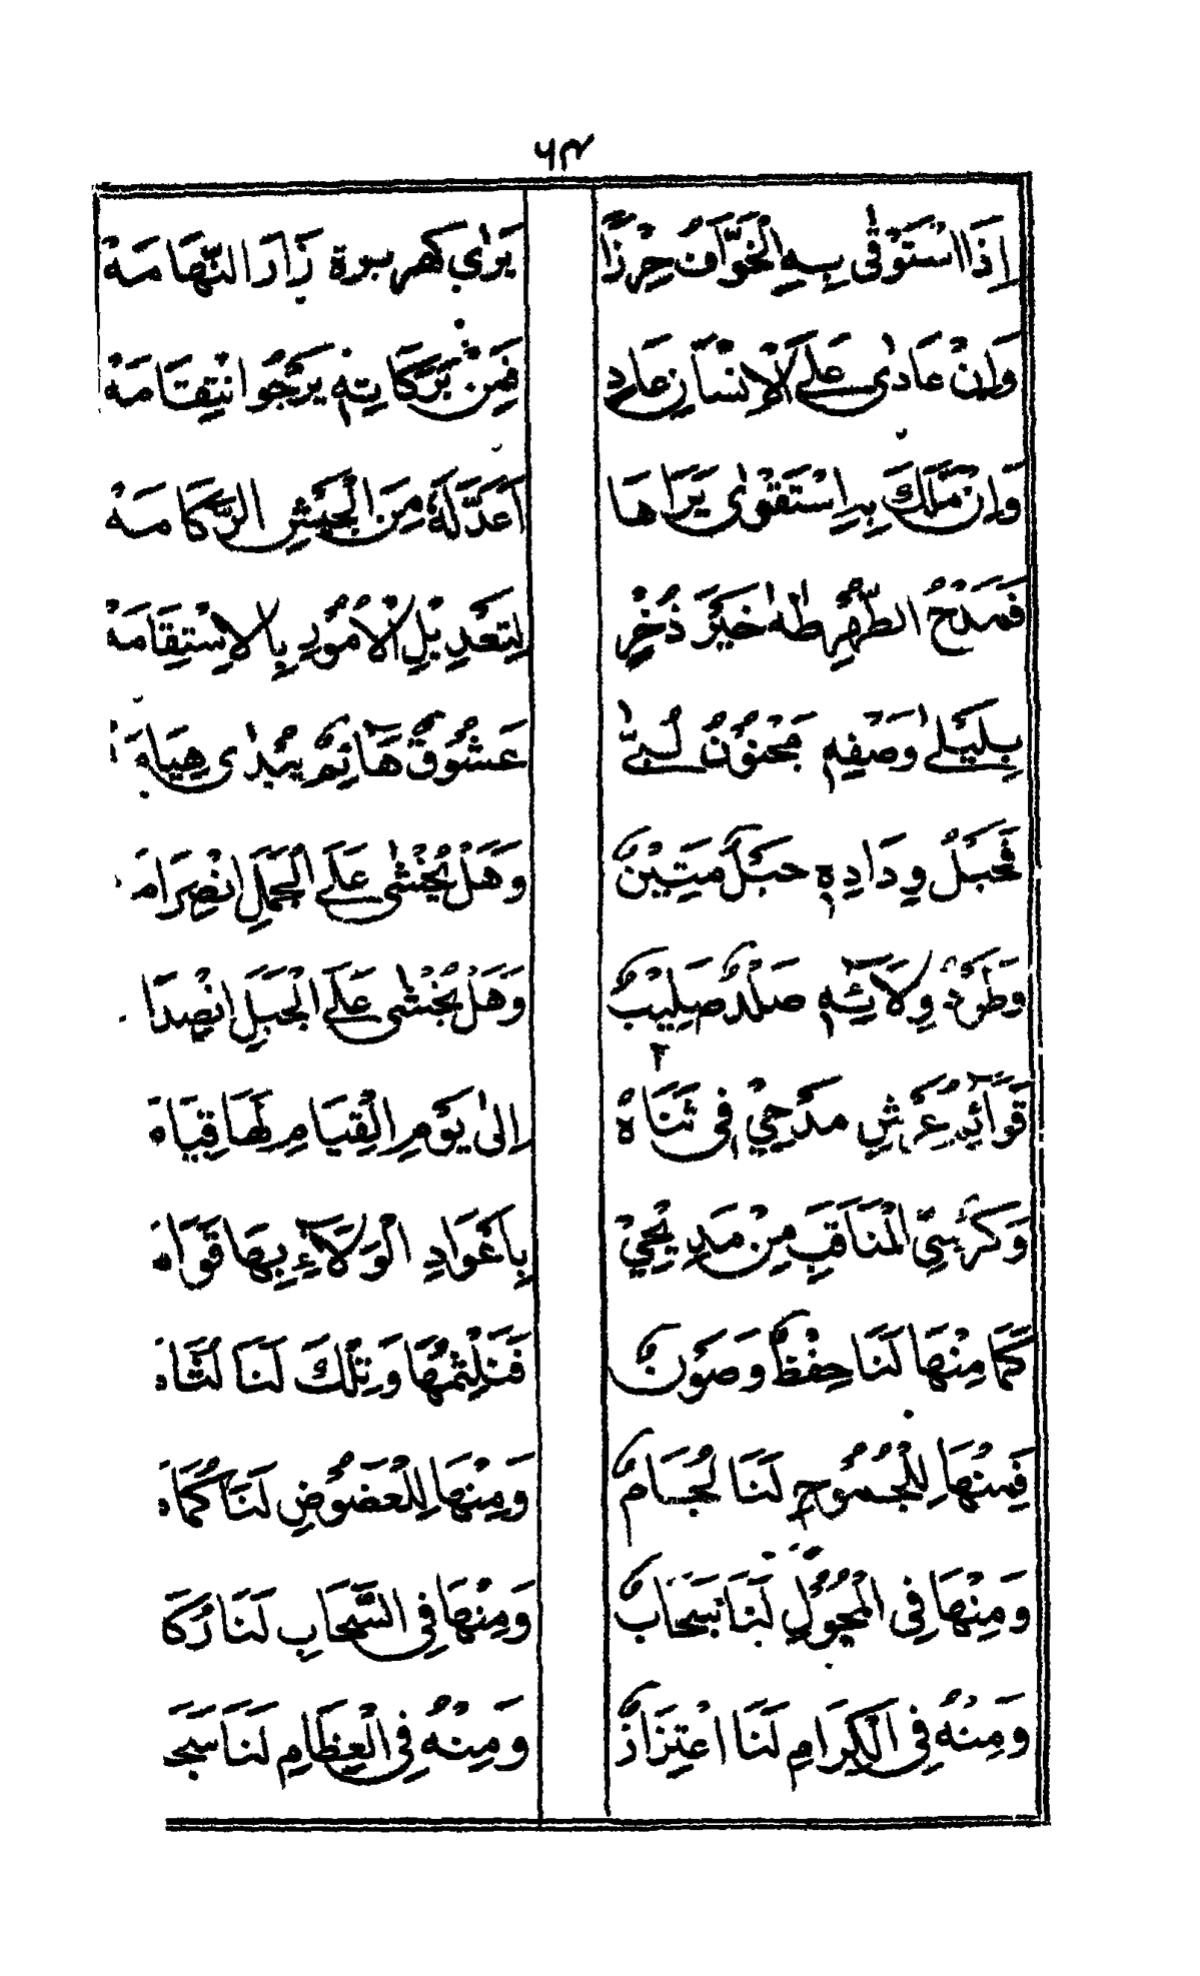 ٦٣
إِذَا اسْتَوْقٰى بِهِ الْخَوَّافُ حِرْزًا يَرٰى كهربرة زَارَ التِّهَامَهْ
وَإِنْ عَادٰى عَلَى الْإِنْسَانِ عَادٍ فَمِنْ بَرَكَاتِهٖ يَرْجُو انْتِقَامَهْ
وَإِنْ مَلِكٌ بِهِ اسْتَقْوٰى يَرَاهَا أَعَدَّ لَهُ مِنَ الْجَيْشِ الرُّكَامَهْ
فَمَدْحُ الطُّهْرِ طٰهٰ خَيْرُ ذُخْرٍ لِتَعْدِيْلِ الْأُمُوْرِ بِالْاِسْتِقَامَهْ
بِلَيْلٰى وَصْفِهٖ مَجْنُوْنُ لُبِّىْ عَشُوْقٌ هَائِمٌ يُبْدٰى هِيَامَهْ
فَحَبْلُ وِدَادِهٖ حَبْلٌ مَتِيْنٌ وَهَلْ يُخْشٰى عَلَى الْحَبْلِ انْصِرَامَ
وَطَوْدُ وِلَآئِهٖ صَلْدٌ صَلِيْبٌ وَهَلْ يُخْشٰى عَلَى الْجَبَلِ انْصِدَا
قَوَآئِمُ عَرْشِ مَدْحِيْ فِيْ ثَنَاهُ إِلٰى يَوْمِ الْقِيَامِ لَهَا قِيَامَ
وَكُرْسِىُّ الْمَنَاقِبِ مِنْ مَدِيْحِيْ بِأَعْوَادِ الْوَلَآءِ بِهَا قَوَامَ
كَمَا مِنْهَا لَنَا حِفْظٌ وَصَوْنٌ فَنَلْثِمُهَا وَتِلْكَ لَنَا لَثَامَ
فَمِنْهَا لِلْجُمُوْحِ لَنَا لُجَامٌ وَمِنْهَا لِلْعَضُوْضِ لَنَا كُمَامَ
وَمِنْهَا فِي الْمُحُوْلِ لَنَا سَحَابٌ وَمِنْهَا فِي السَّحَابِ لَنَا رُكَا
وَمِنْهُ فِي الْكِرَامِ لَنَا اعْتِزَازٌ وَمِنْهُ فِي الْعِظَامِ لَنَا سَجَ